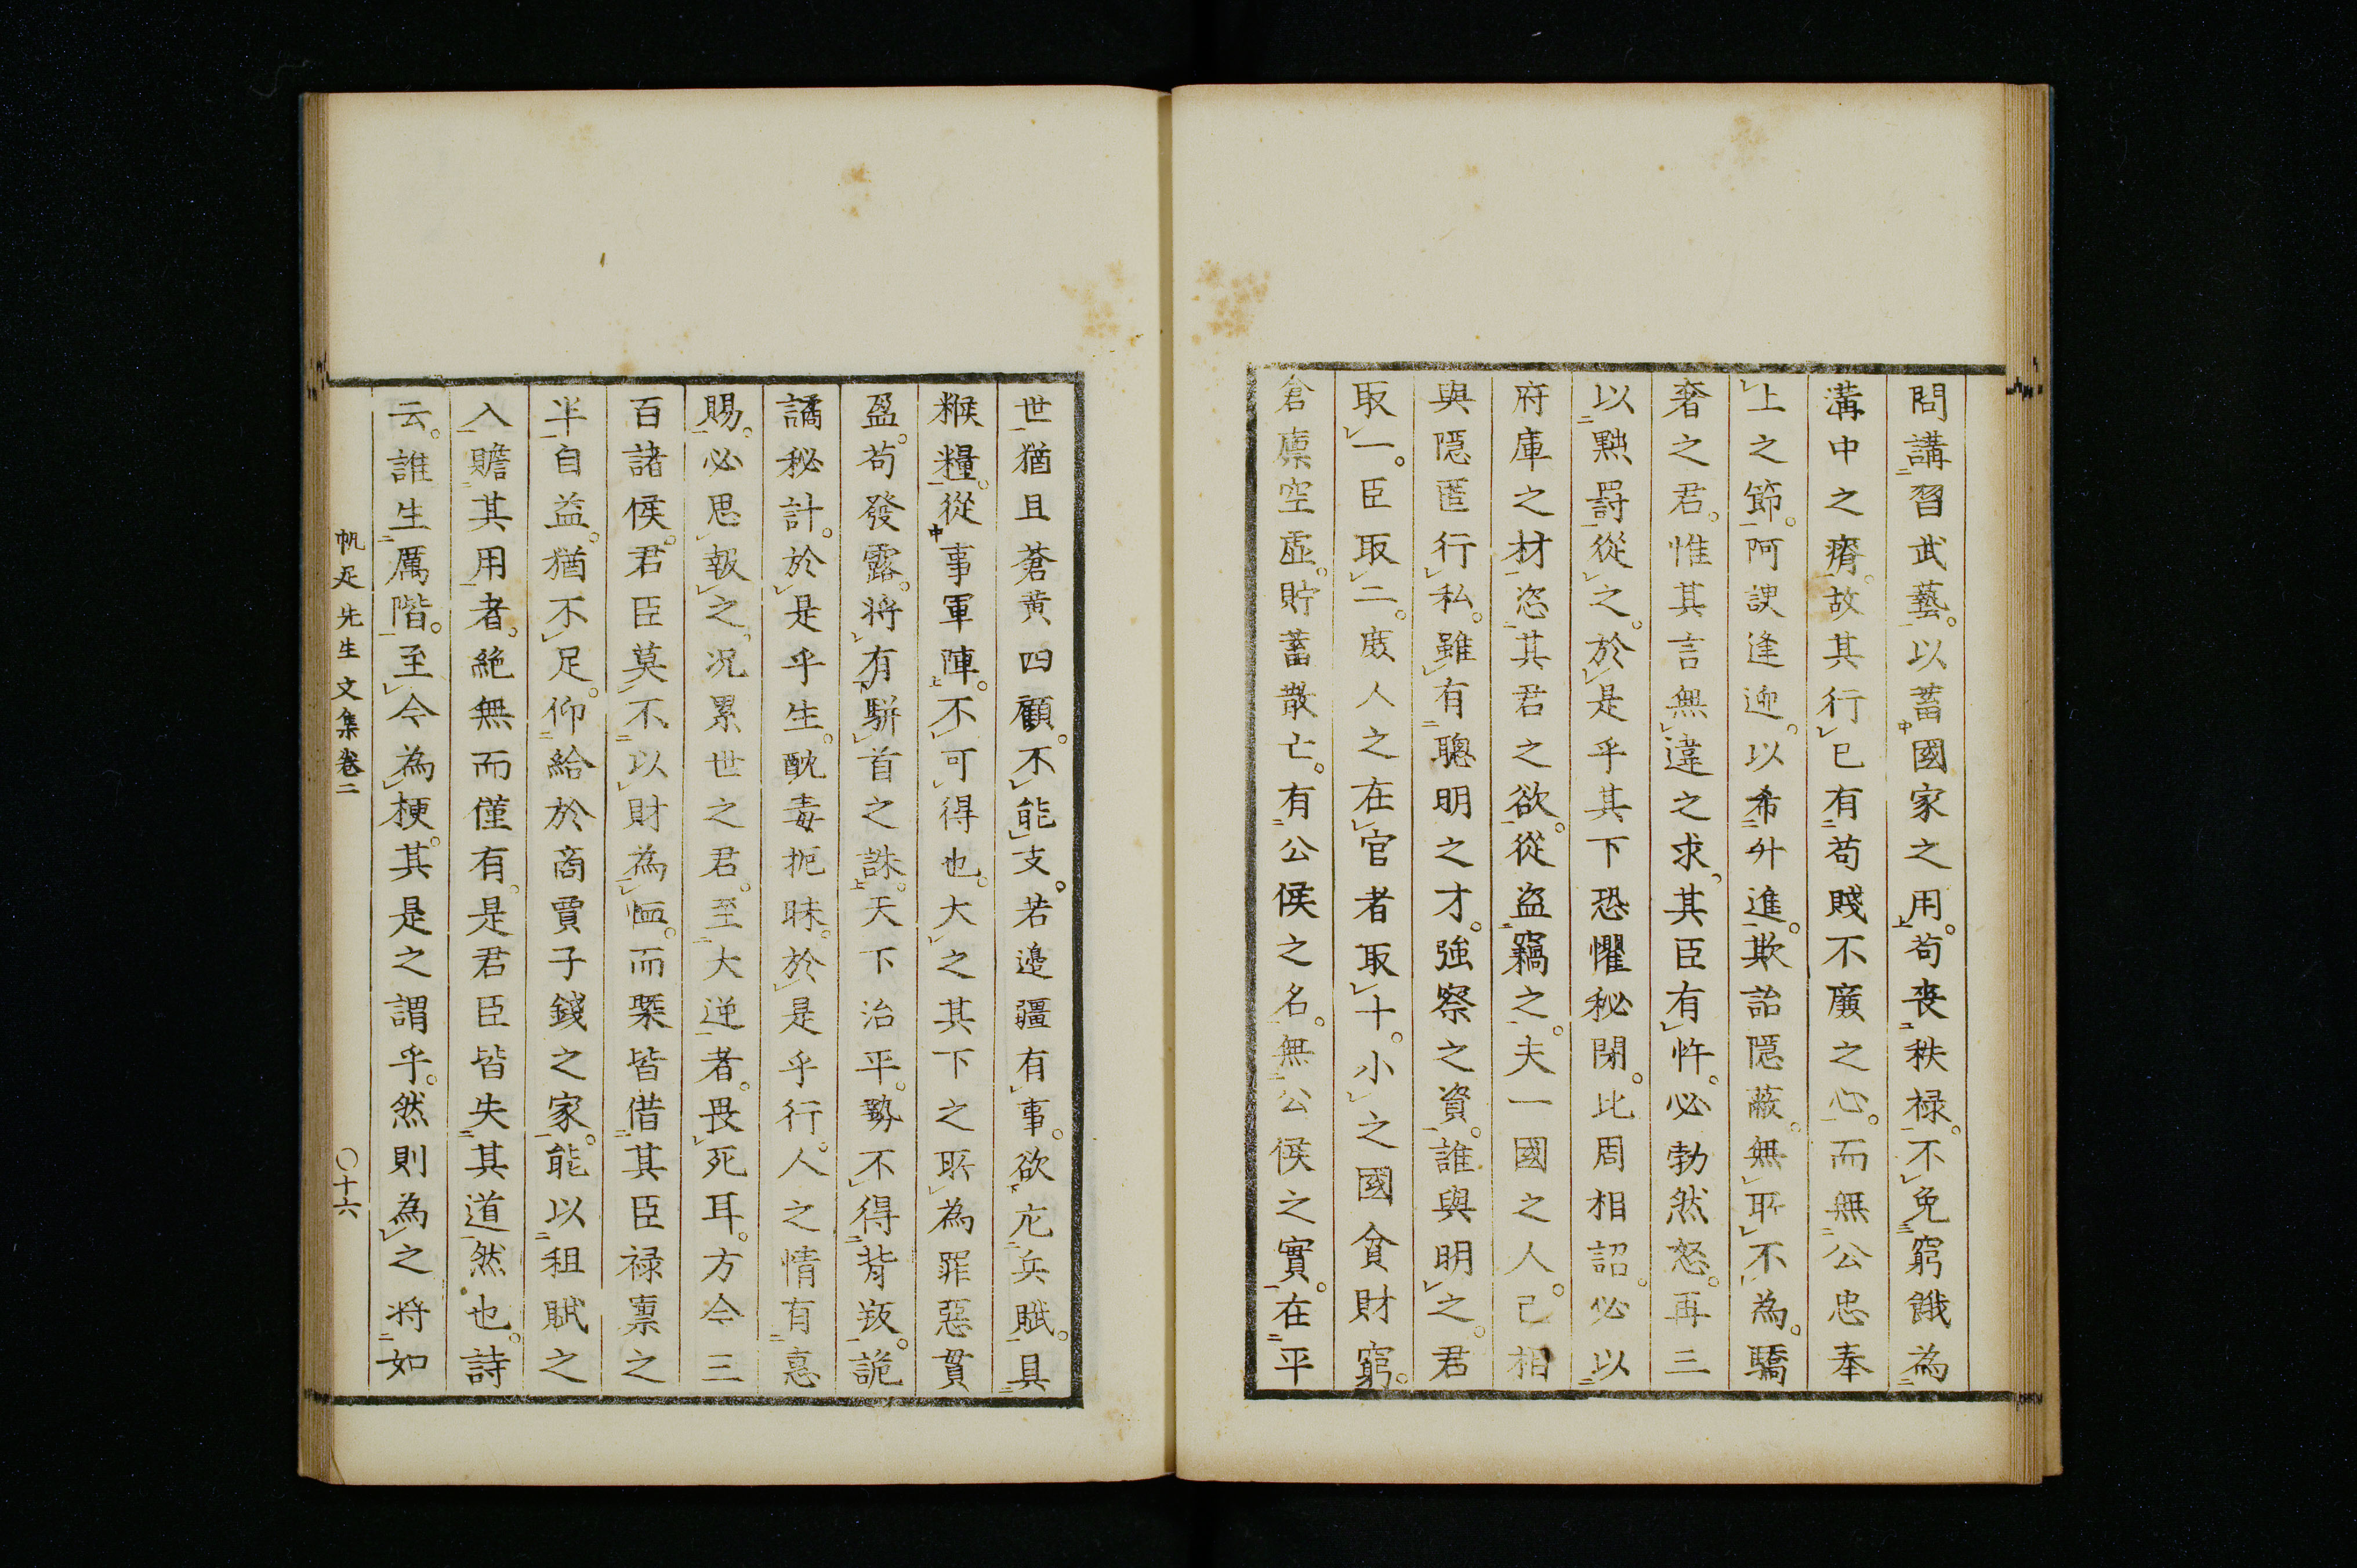 問講習武藝。以蓄國家之用。苟喪秩祿。不免窮餓為
溝中之瘠。故其行已有苟賤不廣之心。而無公忠奉
上之節。阿諛逢迎。以希升進。欺詒隱蔽。無所不為。驕
奢之君。惟其言無違之求。其臣有忤。必勃然怒。再三
以黜罰從之。於是乎其下恐懼秘閉。比周相詔。必以
府庫之材。恣其君之欲。從盗竊之。夫一國之人。己相
與隱匿行私。雖有聰明之才。強察之資。誰與明之。君
取一。臣取二。庶人之在官者取十。小之國貧財窮。
倉廩空虛。貯蓄散亡。有公侯之名。無公侯之實。在平
世猶且蒼黃四顧。不能支。若邊疆有事。欲庀兵賦。具
糇糧。從事軍陣。不可得也。大之其下之所為罪惡貫
盈。苟發露。将有駢首之誅。天下治平。勢不得背叛。詭
譎秘計。於是乎生。酖毒扼昧。於是乎行。人之情有惠
賜。必思報之。况累世之君。至大逆者。畏死耳。方今三
百諸侯。君臣莫不以財為恤。而槩皆借其臣祿稟之
半自益。猶不足。仰給於商賈子錢之家。能以租賦之
入贍其用者。絶無而僅有。是君臣皆失其道然也。詩
云。誰生厲階。至今為梗。其是之謂乎。然則為之将如
帆足先生文集卷二
〇十六